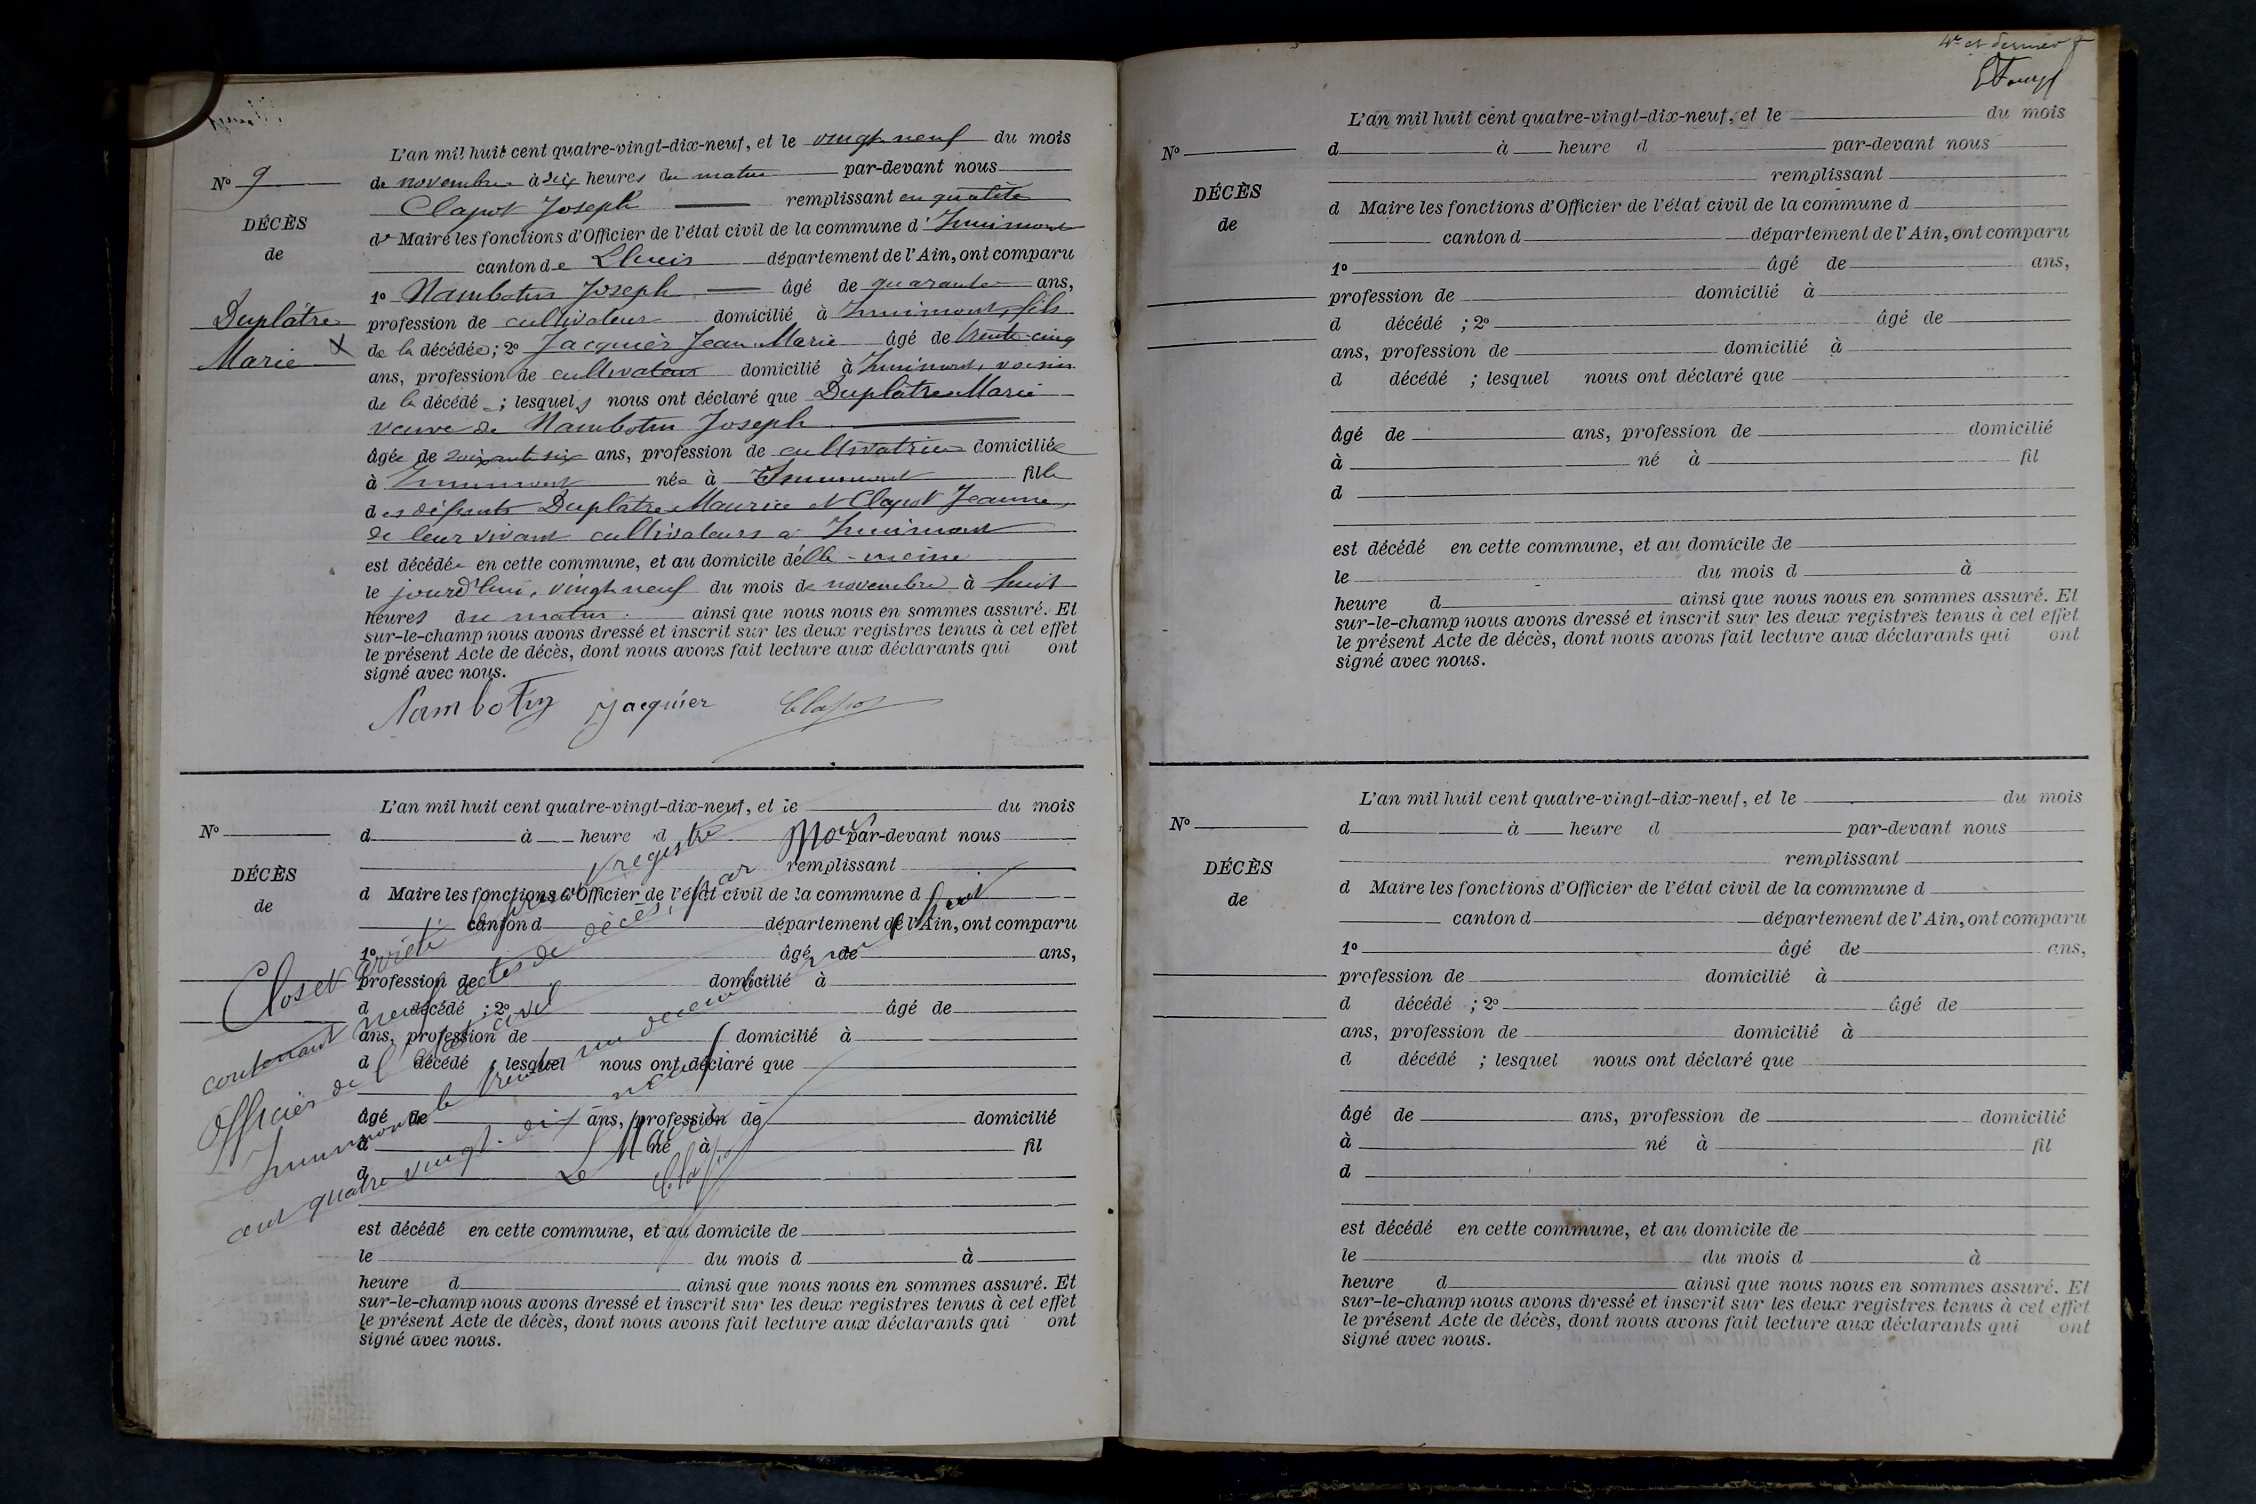 L'an mil huit cent quatre-vingt-dix-neuf, et le vingt neuf du mois
N° 9
de novembre à dix heures du matin par-devant nous
Clapot Joseph remplissant en qualité
DÉCÈS
de Maire les fonctions d'Officier de l'état civil de la commune d'Innimont
de
canton de Lhuis département de l'Ain, ont comparu
1° Nambotin Joseph âgé de quarante ans,
Duplâtre
profession de cultivateur domicilié à Innimont, fils
Marie
de la décédée; 2° Jacquier Jean Marie âgé de trente cinq
ans, profession de cultivateur domicilié à Innimont, voisin
de la décédée; lesquels nous ont déclaré que Duplâtre Marie
veuve de Nambotin Joseph
âgée de soixante six ans, profession de cultivatrice domiciliée
à Innimont née à Innimont fille
des défunts Duplâtre Maurice et Clapot Jeanne,
de leur vivant cultivateurs à Innimont
est décédée en cette commune, et au domicile d'elle-même
le jourd'hui, vingt neuf du mois de novembre à huit
heures du matin ainsi que nous nous en sommes assuré. Et
sur-le-champ nous avons dressé et inscrit sur les deux registres tenus à cet effet
le présent Acte de décès, dont nous avons fait lecture aux déclarants qui ont
signé avec nous.
Nambotin Jacquier Clapot
L'an mil huit cent quatre-vingt-dix-neuf, et le du mois
N°
d à heure d par-devant nous
remplissant
DÉCÈS
d Maire les fonctions d'Officier de l'état civil de la commune d
de
canton d département de l'Ain, ont comparu
1° âgé de ans,
profession de domicilié à
d décédé ; 2° âgé de
ans, profession de domicilié à
d décédé ; lesquel nous ont déclaré que
âgé de ans, profession de domicilié
à né à fil
d
est décédé en cette commune, et au domicile de
le du mois d à
heure d ainsi que nous nous en sommes assuré. Et
sur-le-champ nous avons dressé et inscrit sur les deux registres tenus à cet effet
le présent Acte de décès, dont nous avons fait lecture aux déclarants qui ont
signé avec nous.
Clos et arrêté le présent registre
contenant neuf actes de décès, par Nous
Officier de l'état civil
Innimont le trente un décembre mil huit
cent quatre vingt-dix neuf
Le Maire
Clapot
4e et dernier f
L'an mil huit cent quatre-vingt-dix-neuf, et le du mois
N°
d à heure d par-devant nous
remplissant
DÉCÈS
d Maire les fonctions d'Officier de l'état civil de la commune d
de
canton d département de l'Ain, ont comparu
1° âgé de ans,
profession de domicilié à
d décédé ; 2° âgé de
ans, profession de domicilié à
d décédé ; lesquel nous ont déclaré que
âgé de ans, profession de domicilié
à né à fil
d
est décédé en cette commune, et au domicile de
le du mois d à
heure d ainsi que nous nous en sommes assuré. Et
sur-le-champ nous avons dressé et inscrit sur les deux registres tenus à cet effet
le présent Acte de décès, dont nous avons fait lecture aux déclarants qui ont
signé avec nous.
L'an mil huit cent quatre-vingt-dix-neuf, et le du mois
N°
d à heure d par-devant nous
remplissant
DÉCÈS
d Maire les fonctions d'Officier de l'état civil de la commune d
de
canton d département de l'Ain, ont comparu
1° âgé de ans,
profession de domicilié à
d décédé ; 2° âgé de
ans, profession de domicilié à
d décédé ; lesquel nous ont déclaré que
âgé de ans, profession de domicilié
à né à fil
d
est décédé en cette commune, et au domicile de
le du mois d à
heure d ainsi que nous nous en sommes assuré. Et
sur-le-champ nous avons dressé et inscrit sur les deux registres tenus à cet effet
le présent Acte de décès, dont nous avons fait lecture aux déclarants qui ont
signé avec nous.